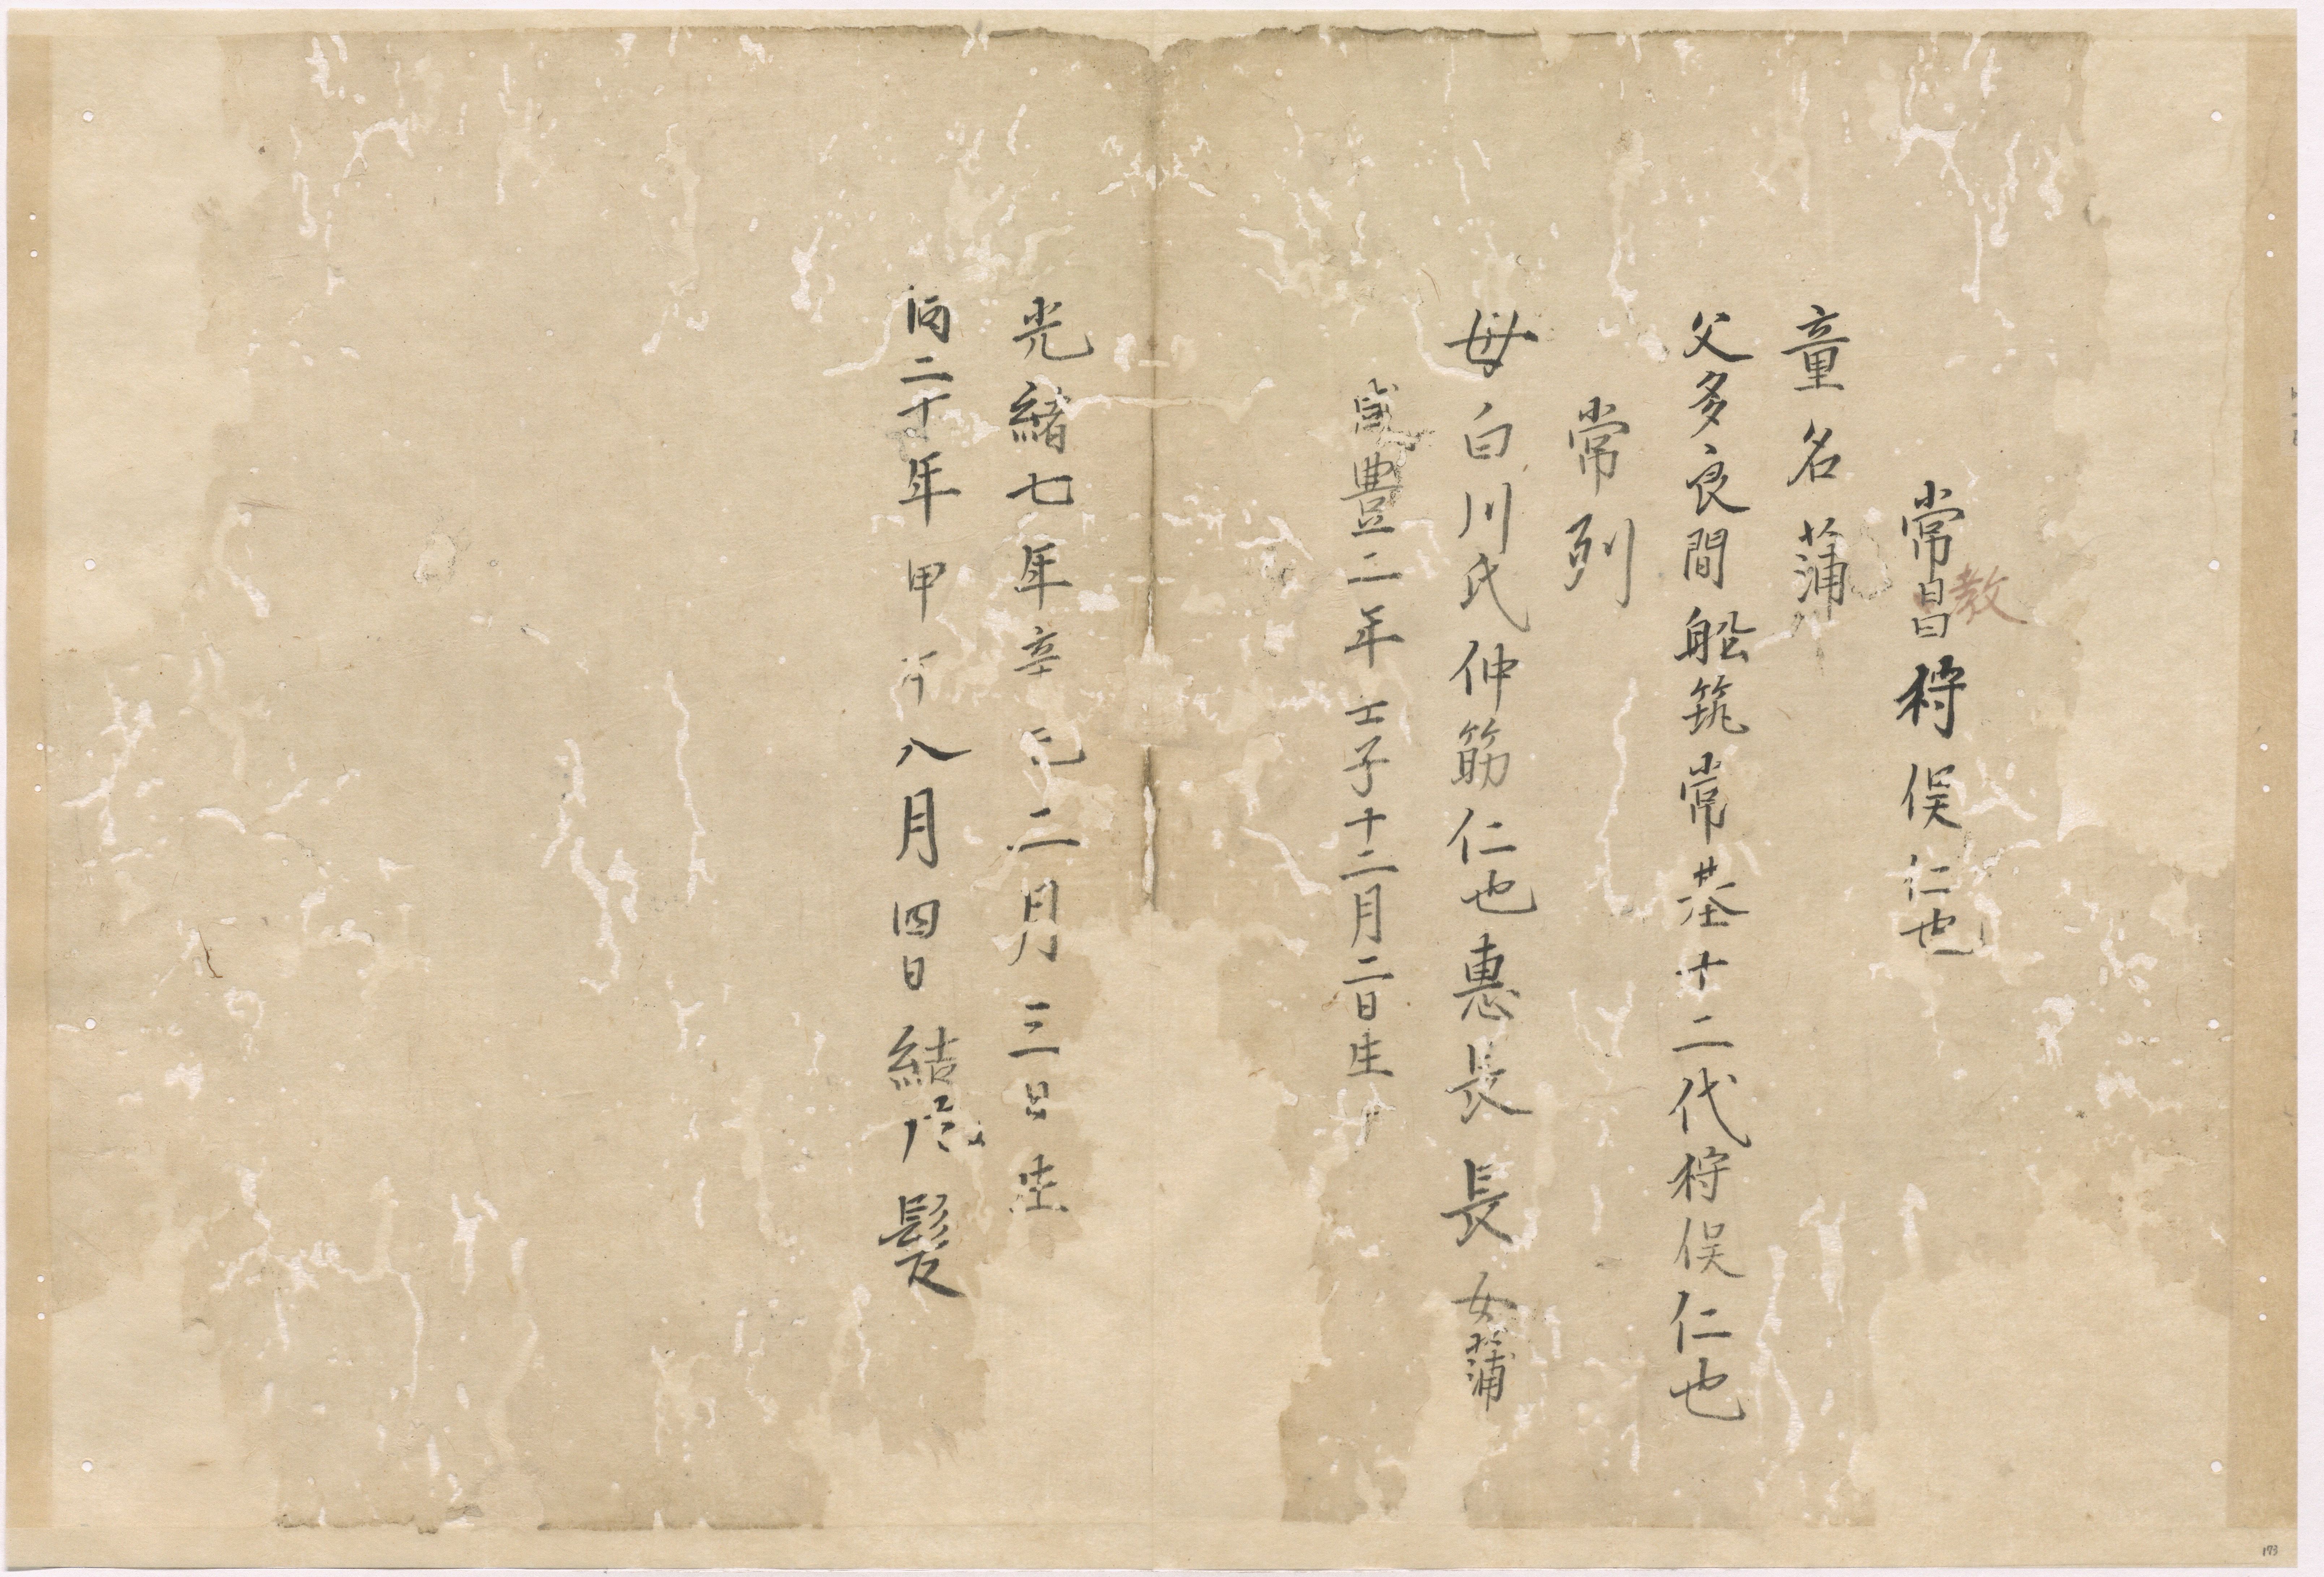 常昌狩俣仁也
教
童名蒲
父多良間船筑常基十二代狩俣仁也
常列
母白川氏仲筋仁也惠長長女蒲
咸豊二年士子十二月二日生
光緒七年辛巳二月三日生
同二十年甲午八月四日結片髪
173